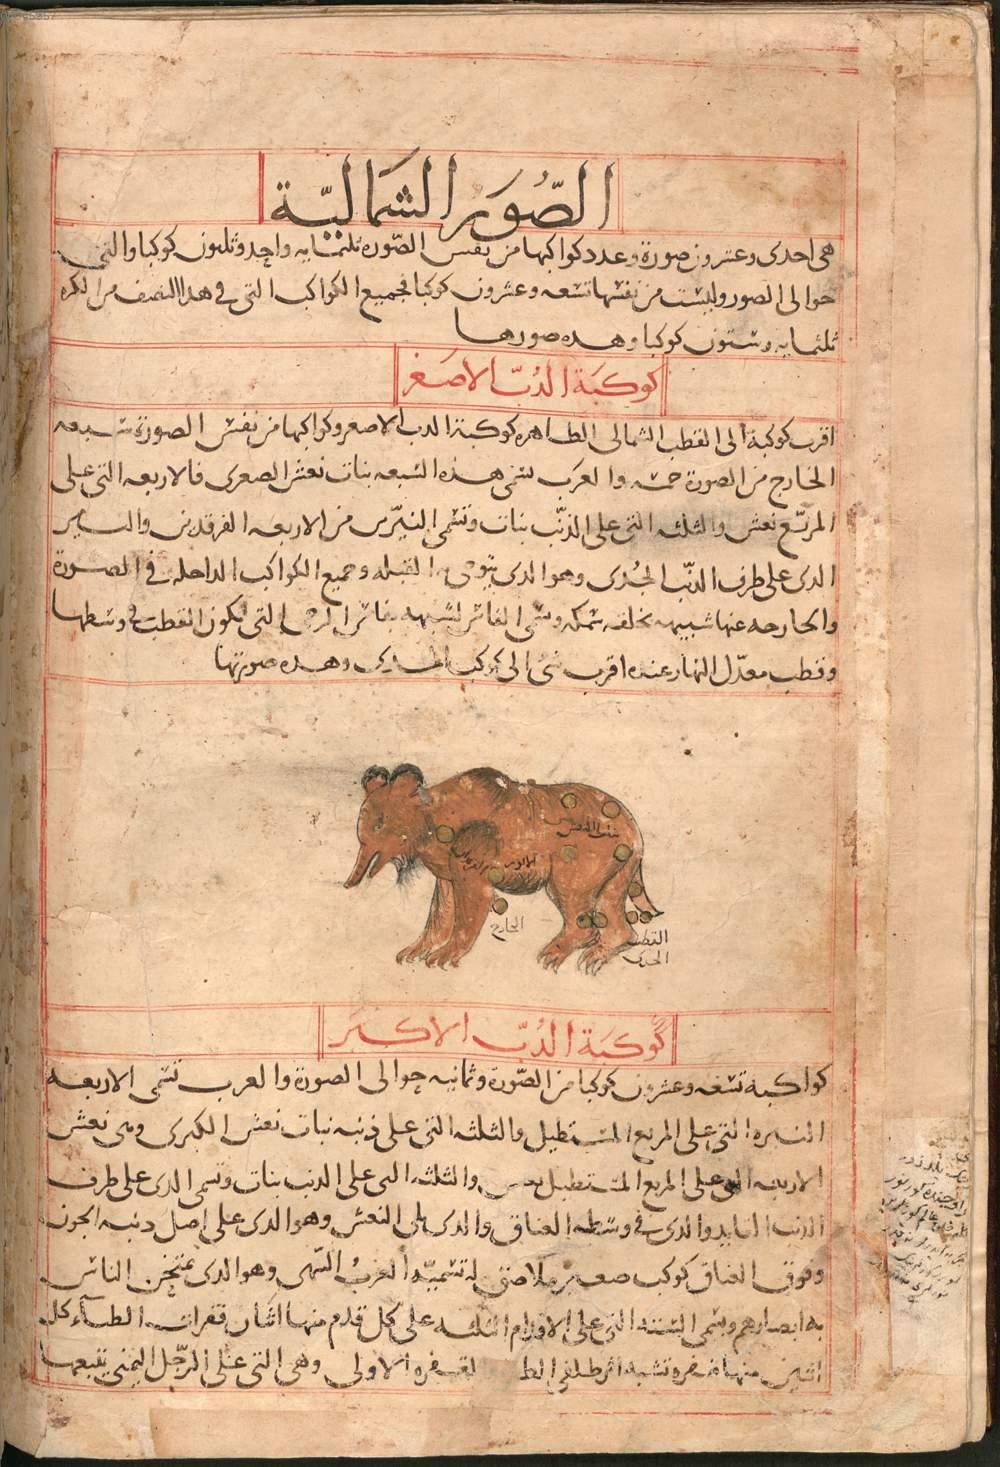 الصّوَر الشماليّة
هى احدى وعشرون صورة وعدد كواكبها من نفس الصّوره ثلثمايه واحد وثلثون كوكبا والتى
حوالى الصور وليست من نفسها تسعه وعشرون كوكبا فجميع الكواكب التى فى هدا النصف من الكره
ثلثمايه وستون كوكبا وهده صورها
كوكبَة الدُبّ الاصَغر
اقرب كوكبة الى القطب الشمالى الظاهره كوكبة الدب الاصغر وكواكبها من نفس الصورة سبعه
الخارج من الصورة خمسه والعرب تسمى هذه السبعه بنات نعش الصغرى فالاربعه التى على
المربّع نعش والثلثه التى على الذنّب بنات وتسمى النيّرين من الاربعه الفرقدين والنير
الدى على طرف الدنّب الجُدى وهو الدى يتوخى به القبله وجميع الكواكب الداخله فى الصورة
والخارجه عنها شبيهه بحلقه سمكه وتسمى الفاس لشبهه بفاس الرحى التى يكون القطب فى وسطها
وقطب معدّل النهار عنده اقرب شى الى كوكب الجدى وهده صورتها
بنات النعش
الخارج
القطب
الجدى
كوكبَة الدُبّ الاكبر
كواكبه تسعه وعشرون كوكبا من الصّورة وثمانيه حوالى الصورة والعرب تسمى الاربعه
النيره التى على المربع المستطيل والثلثه التى على ذنبه بنات نعش الكبرى وبنى نعش
الاربعه التى على المربع المستطيل نعش والثلثه التى على الدنب بنات وتسمى الدى على طرف
الدنب القايد والدى فى وسطه العناق والدى يلى النعش وهو الدى على اصل دنبه الجون
وفوق العناق كوكب صغير ملاصق له تسميّه العربُ السّهى وهو الدى يمتحن الناس
به ابصارهم ويسمى الستة التى على الاقدام الثلثه على كل قدم منها اثنان قفزات الظبآء كل
اثنين منها قفزه تشبه اثر ظلفى الظ القفزه الاولى وهى التى على الرّجل اليمنى يتبعها